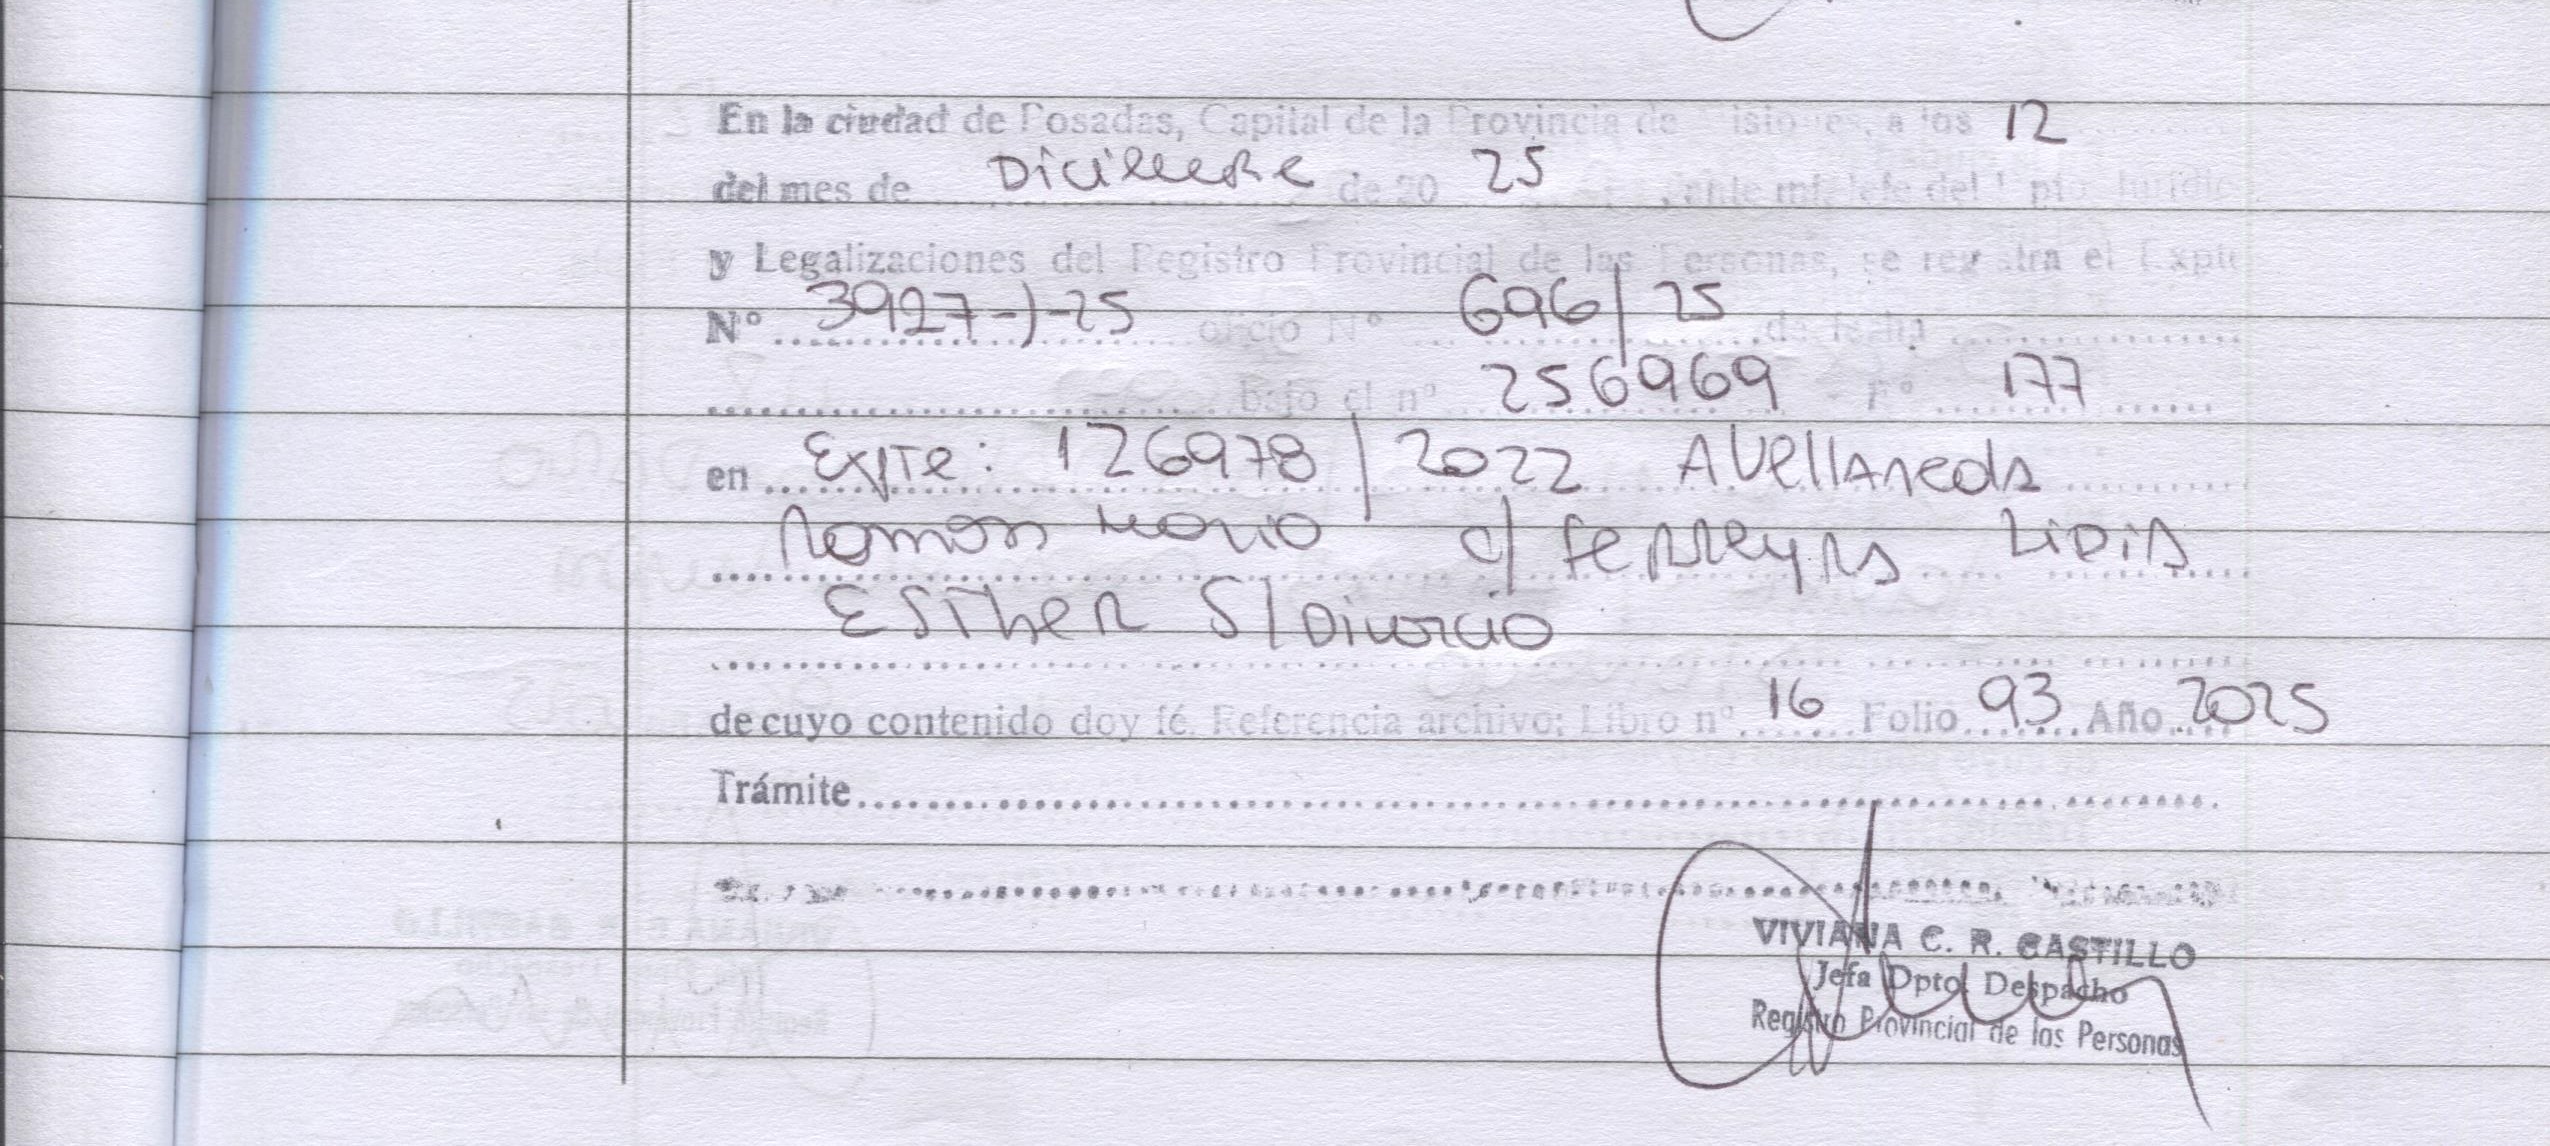 En la ciudad de Posadas, Capital de la Provincia de Misiones, a los 12
del mes de Diciembre de 20 25, ante mi, Jefe del Dpto. Jurídico
y Legalizaciones del Registro Provincial de las Personas, se registra el Expte
N° 3927-J-25 oficio N° 696/25 de fecha
bajo el n° 256969 F° 177
en Expte: 126978/2022 Avellaneda
Ramon Mario c/ Ferreyra Lidia
Esther S/Divorcio
de cuyo contenido doy fé. Referencia archivo: Libro n° 16 Folio 93 Año 2025
Trámite
VIVIANA C. R. CASTILLO
Jefa Dpto. Despacho
Registro Provincial de las Personas